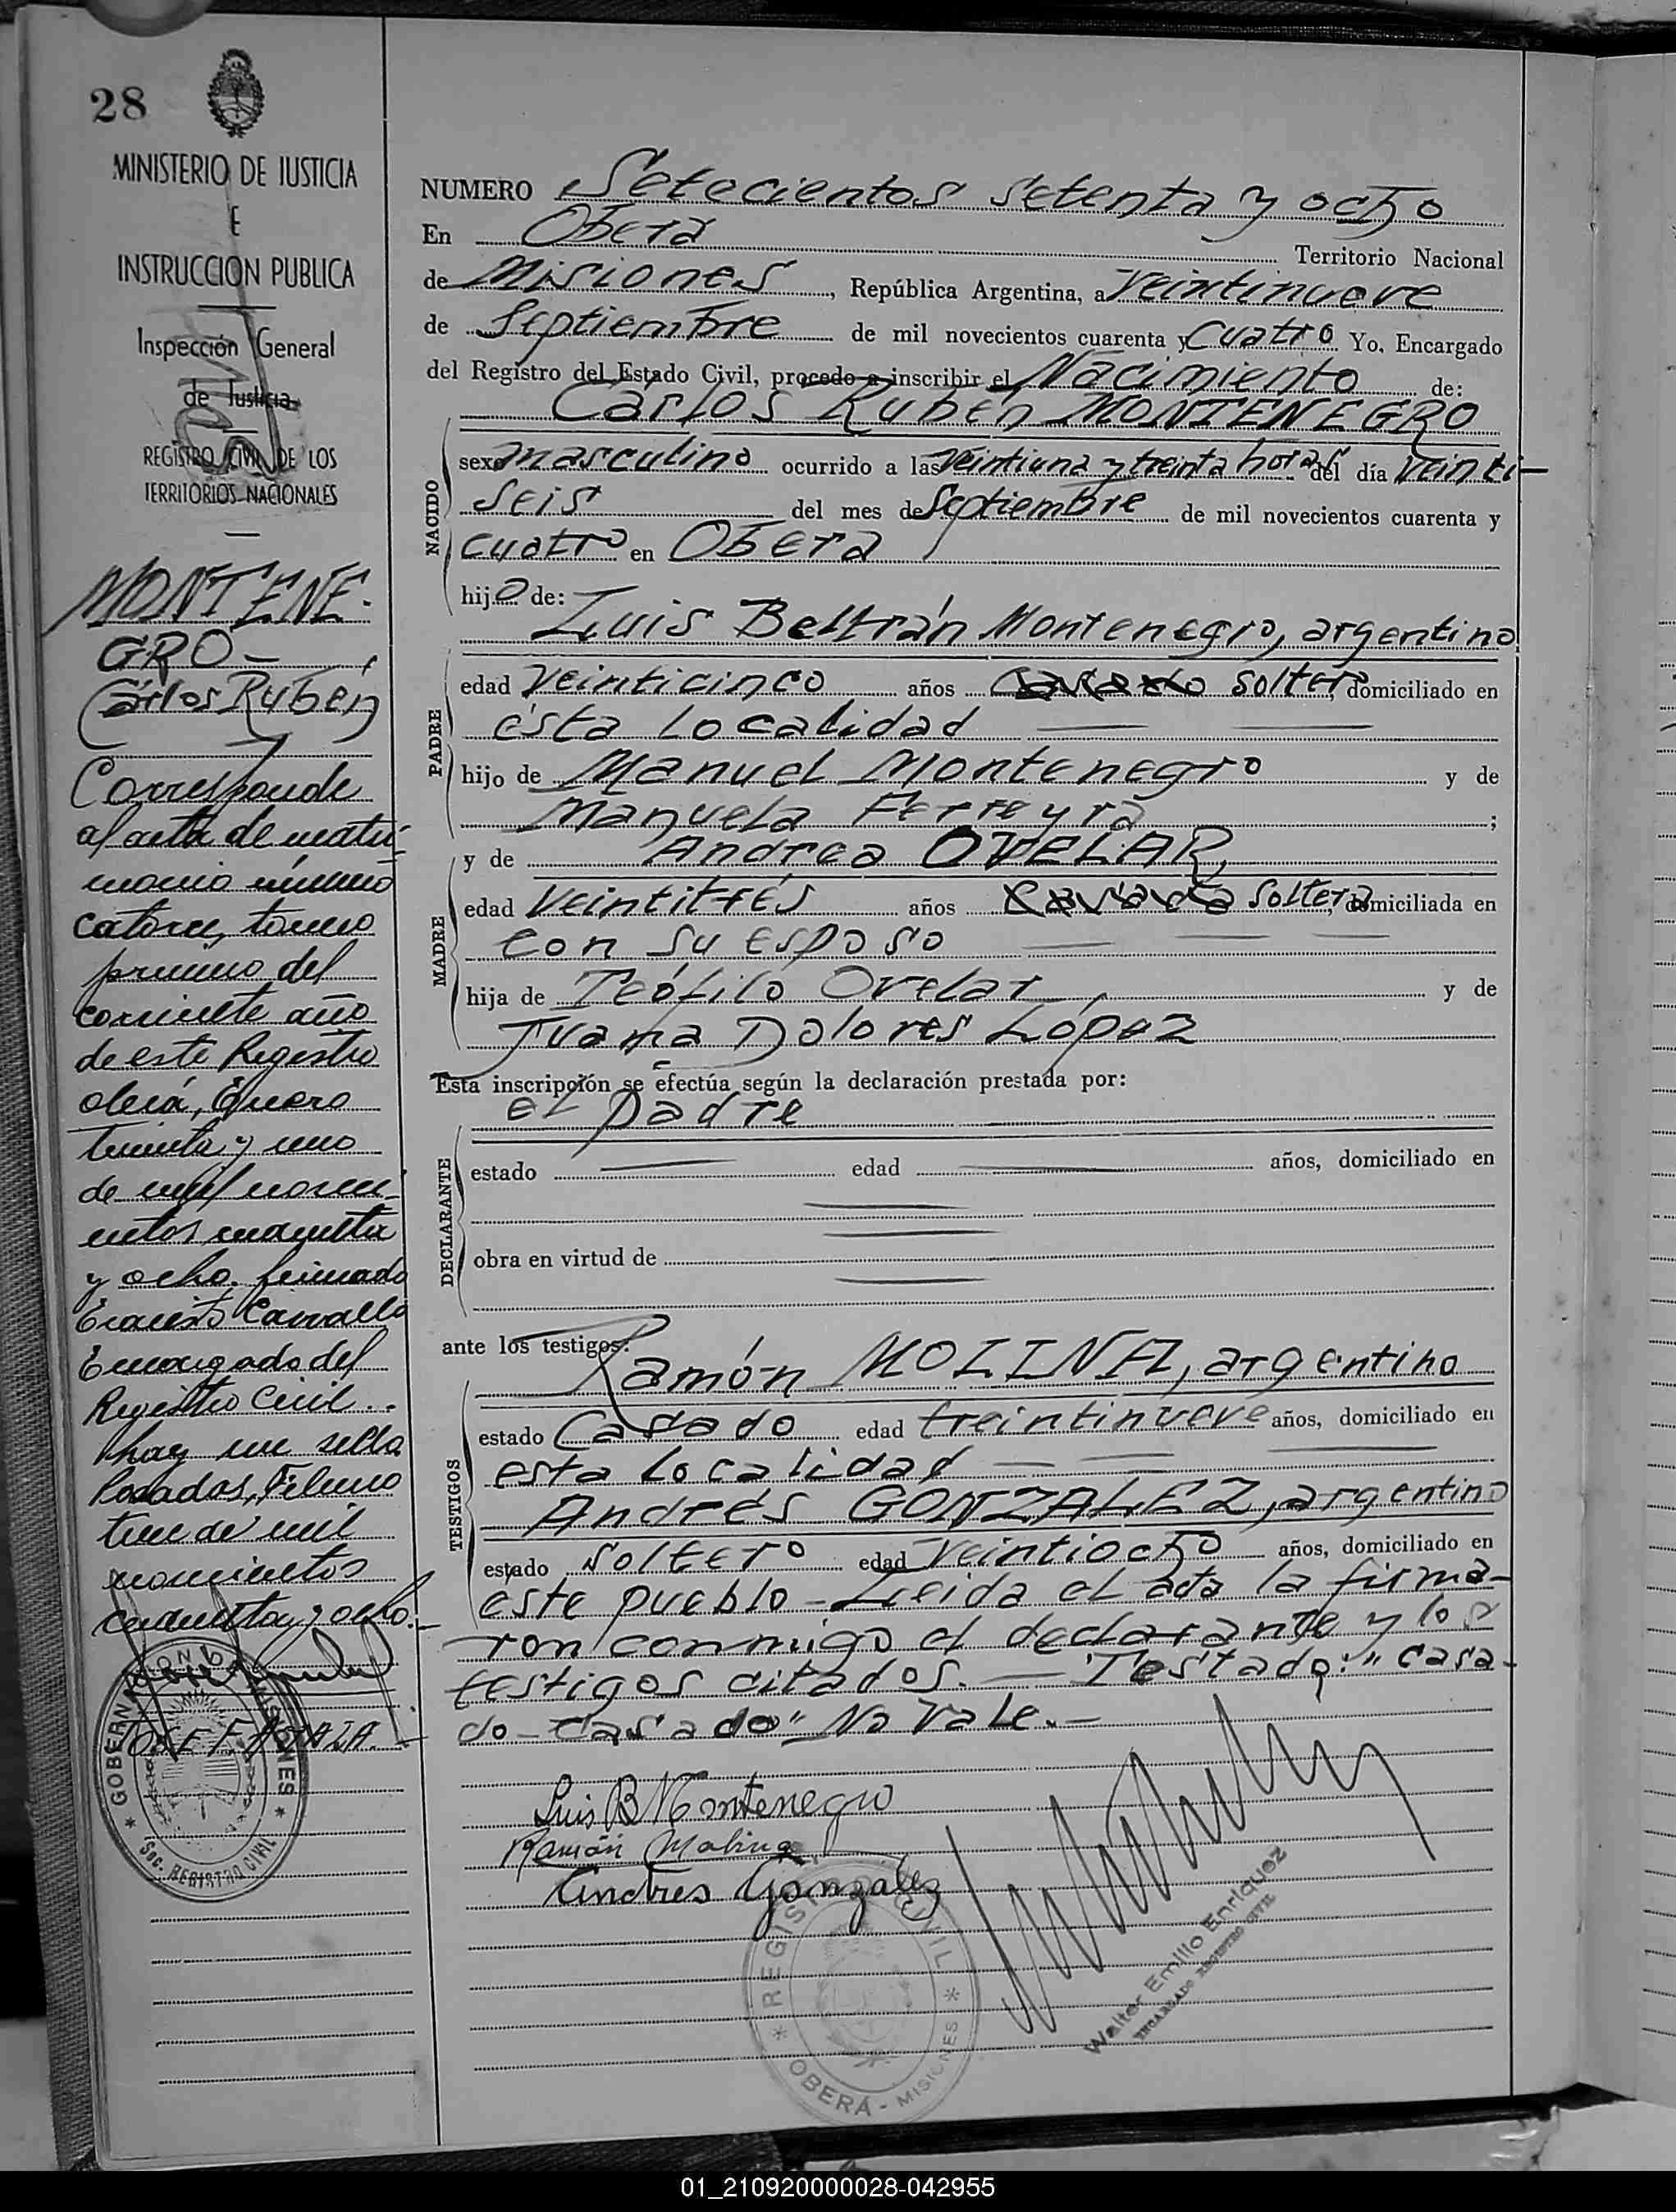 28
MINISTERIO DE JUSTICIA
E
INSTRUCCION PUBLICA
Inspección General
de Justicia
REGISTRO CIVIL DE LOS
TERRITORIOS NACIONALES
MONTENE-
GRO -
Carlos Rubén
Corresponde
al acta de matri-
monio número
catorce, tomo
primero del
corriente año
de este Registro
Oberá, Enero
treinta y uno
de mil nove-
cientos cuarenta
y ocho. firmado
Ernesto Carvallo
Encargado del
Registro Civil..
hay un sello
Posadas, Febrero
tres de mil
novecientos
cuarenta y ocho.-
GOBERNACION DE MISIONES
Sec. REGISTRO CIVIL
NUMERO Setecientos setenta y ocho
En Oberá Territorio Nacional
de Misiones, República Argentina, a Veintinueve
de Septiembre de mil novecientos cuarenta y Cuatro Yo, Encargado
del Registro del Estado Civil, procedo a inscribir el Nacimiento de:
Carlos Rubén MONTENEGRO
NACIDO
sexo masculino ocurrido a las Veintiuna y treinta horas del día Veinti-
seis del mes de Septiembre de mil novecientos cuarenta y
cuatro en Oberá
hijo de:
Luis Beltrán Montenegro, argentino
PADRE
edad Veinticinco años Casado solter domiciliado en
ésta localidad
hijo de Manuel Montenegro y de
Manuela Ferreyra ;
y de Andrea OVELAR,
MADRE
edad Veintitrés años Casada Soltera domiciliada en
con su esposo
hija de Teófilo Ovelar, y de
Juana Dolores López
Esta inscripción se efectúa según la declaración prestada por:
el padre
DECLARANTE
estado edad años, domiciliado en
obra en virtud de
ante los testigos:
Ramón MOLINA, argentino
TESTIGOS
estado Casado edad treintinueve años, domiciliado en
esta localidad
Andrés GONZALEZ, argentino
estado soltero edad Veintiocho años, domiciliado en
este pueblo - Leida el acta la firma-
ron conmigo el declarante y los
testigos citados. - Testado: "casa-
do - Casado" No Vale. -
Luis B Montenegro
Ramón Molina
Andres Gonzalez
REGISTRO CIVIL
OBERÁ - MISIONES
Walter Emilio Enriquez
ENCARGADO REGISTRO CIVIL
01_210920000028-042955